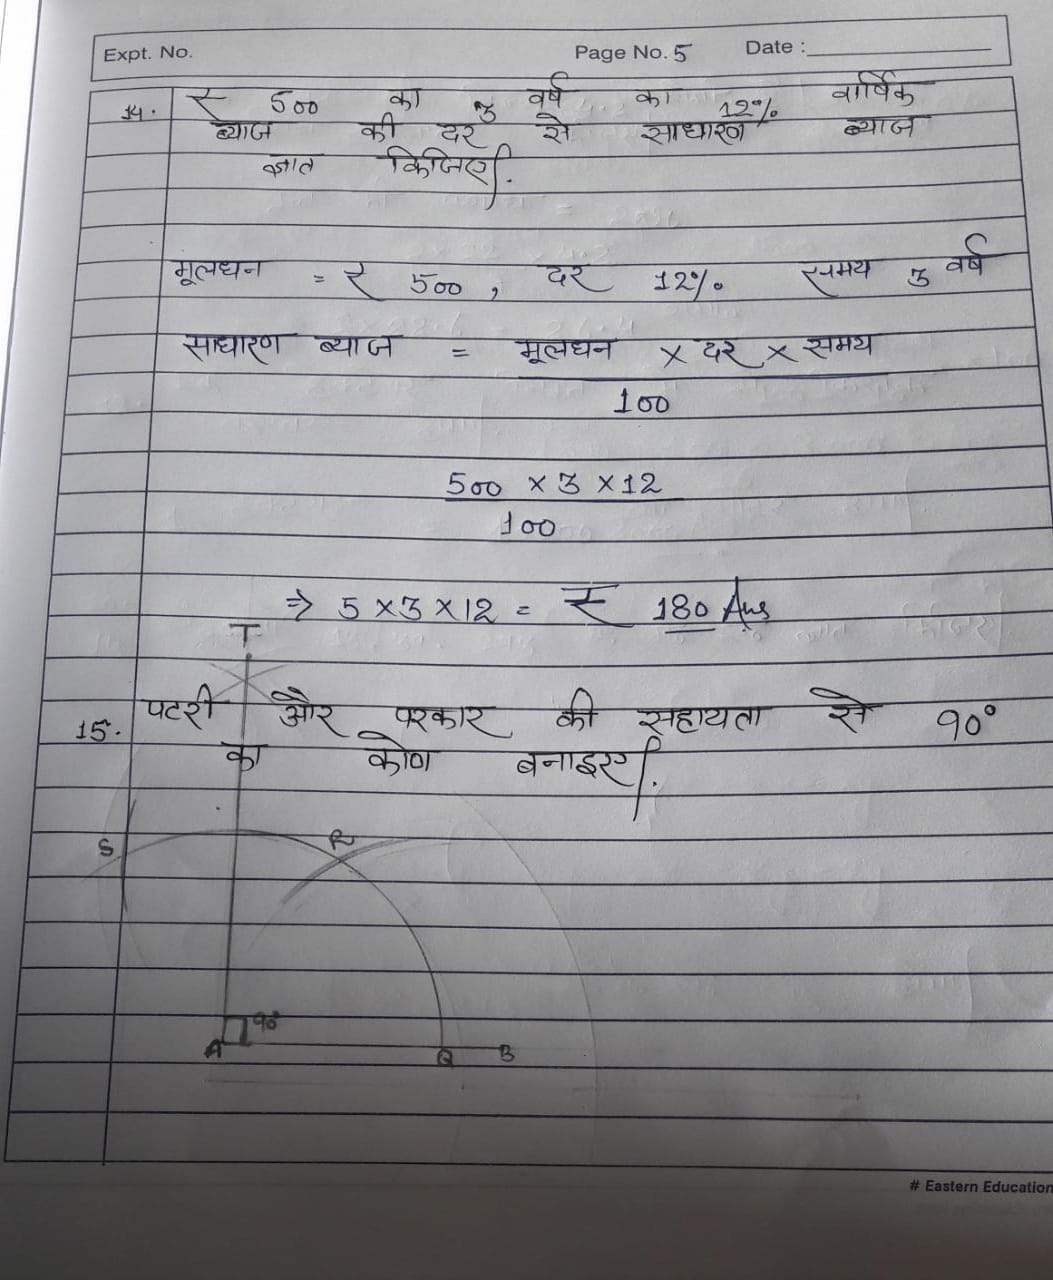 Expt. No. Page No. 5 Date :
14. ₹ 500 का 3 वर्ष का 12% वार्षिक
ब्याज की दर से साधारण ब्याज
ज्ञात किजिए.
मूलधन = ₹ 500, दर 12% समय 3 वर्ष
साधारण ब्याज = मूलधन × दर × समय
100
500 × 3 × 12
100
⇒ 5 × 3 × 12 = ₹ 180 Ans
T
15. पटरी और परकार की सहायता से 90°
का कोण बनाइए.
S R
90°
A Q B
# Eastern Education